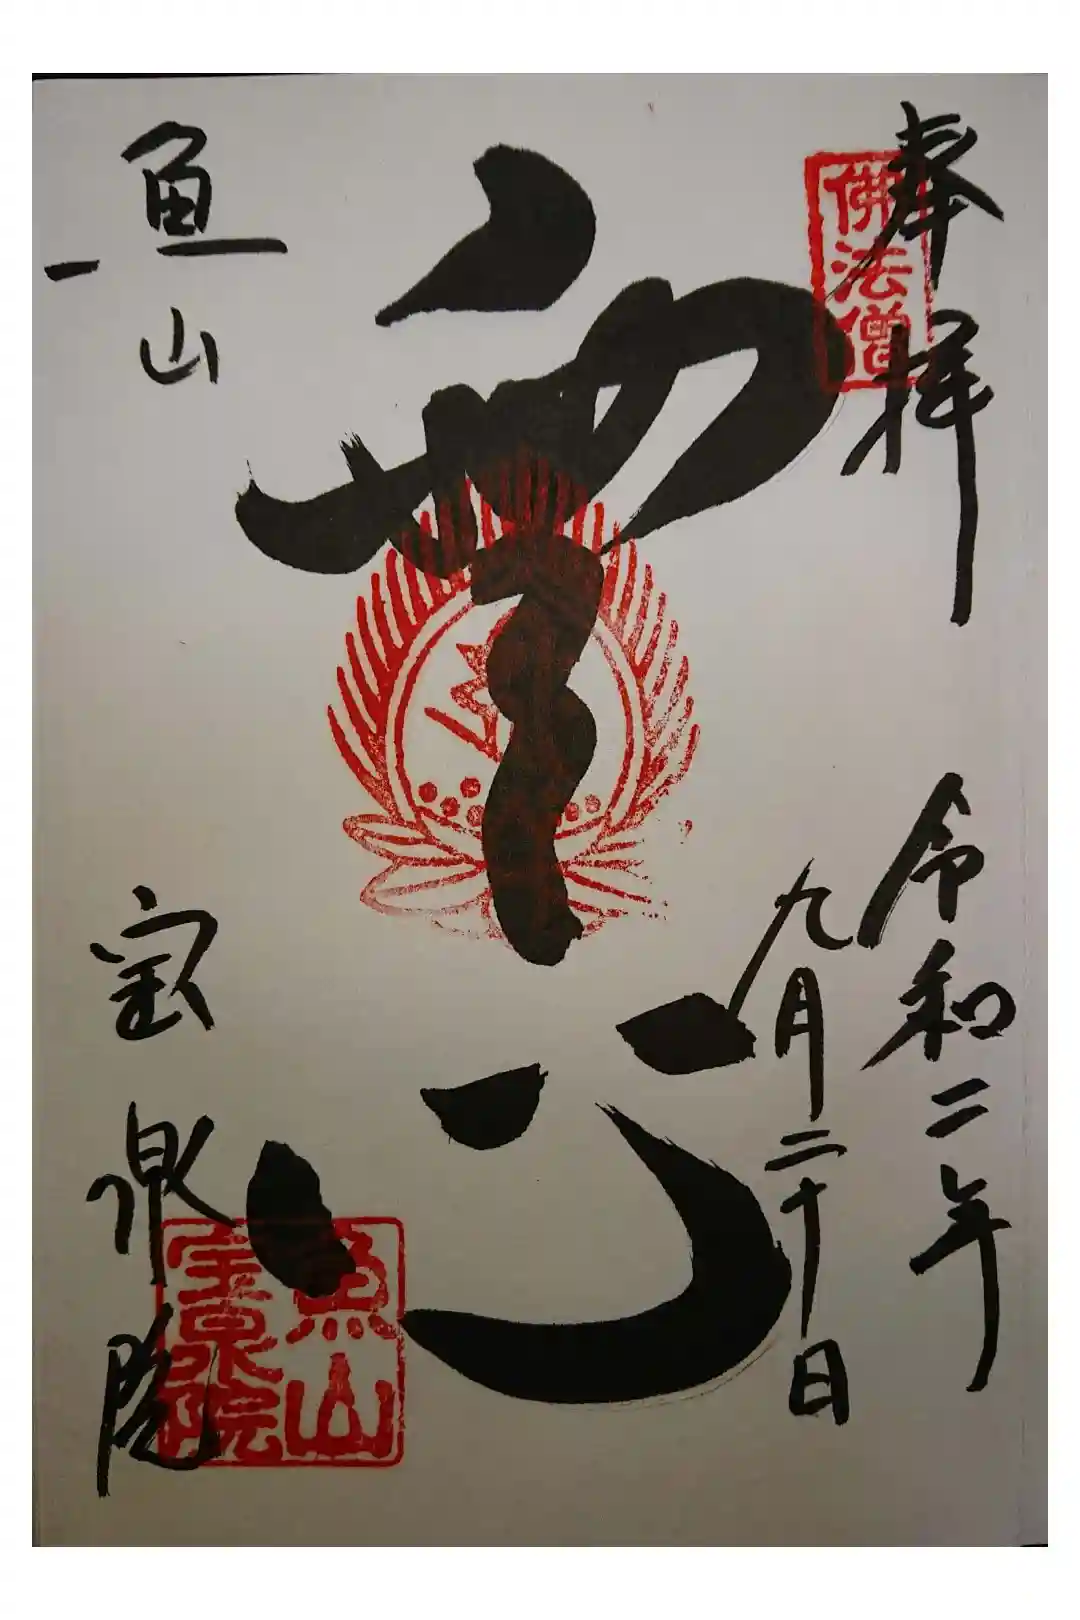 奉拝
佛法僧
令和二年
九月二十日
無心
魚山
宝泉院
魚山
宝泉院